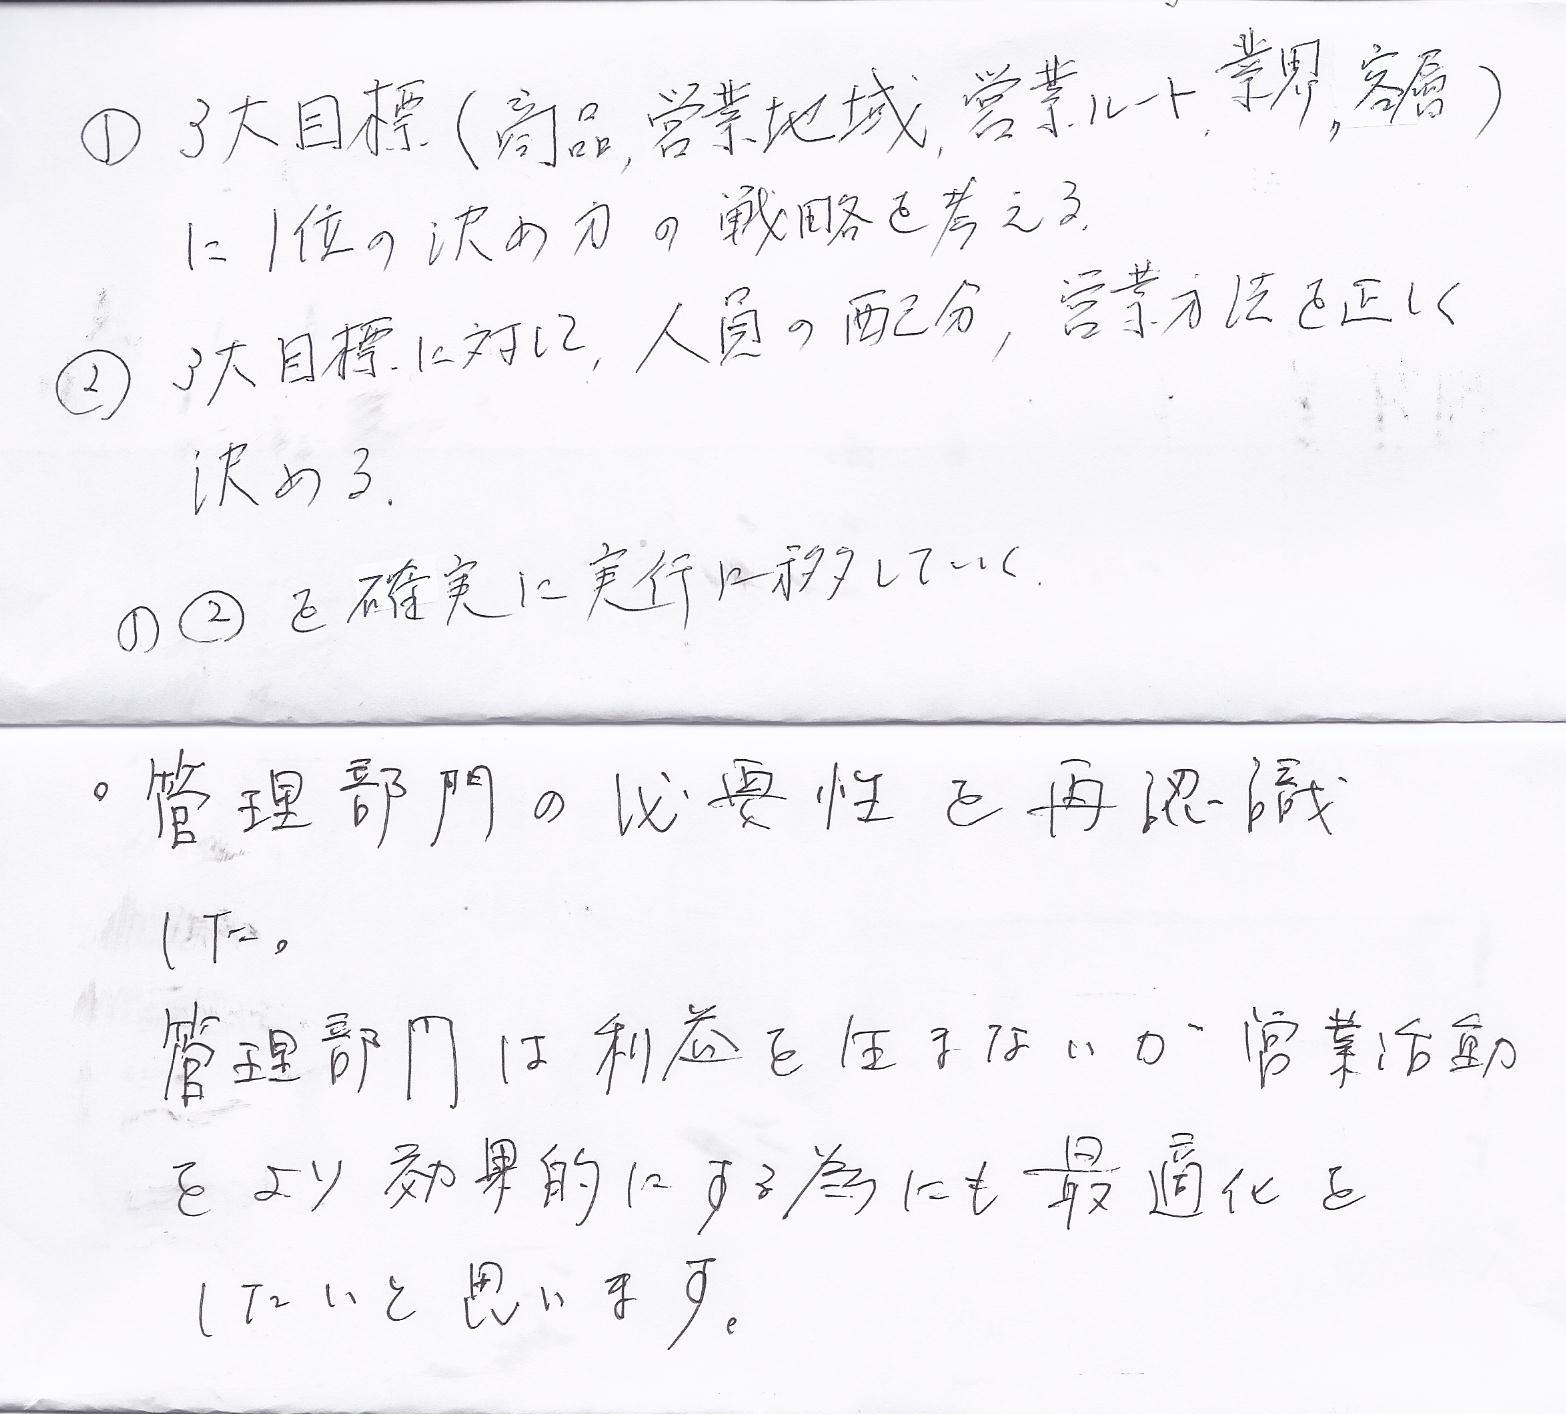 ① 3大目標(商品,営業地域,営業ルート,業界,客層)
に1位の決め方の戦略を考える.
② 3大目標に対して,人員の配分,営業方法を正しく
決める.
の②を確実に実行に移していく.
。管理部門の必要性を再認識
した。
管理部門は利益を生まないが営業活動
をより効果的にする為にも最適化を
したいと思います。